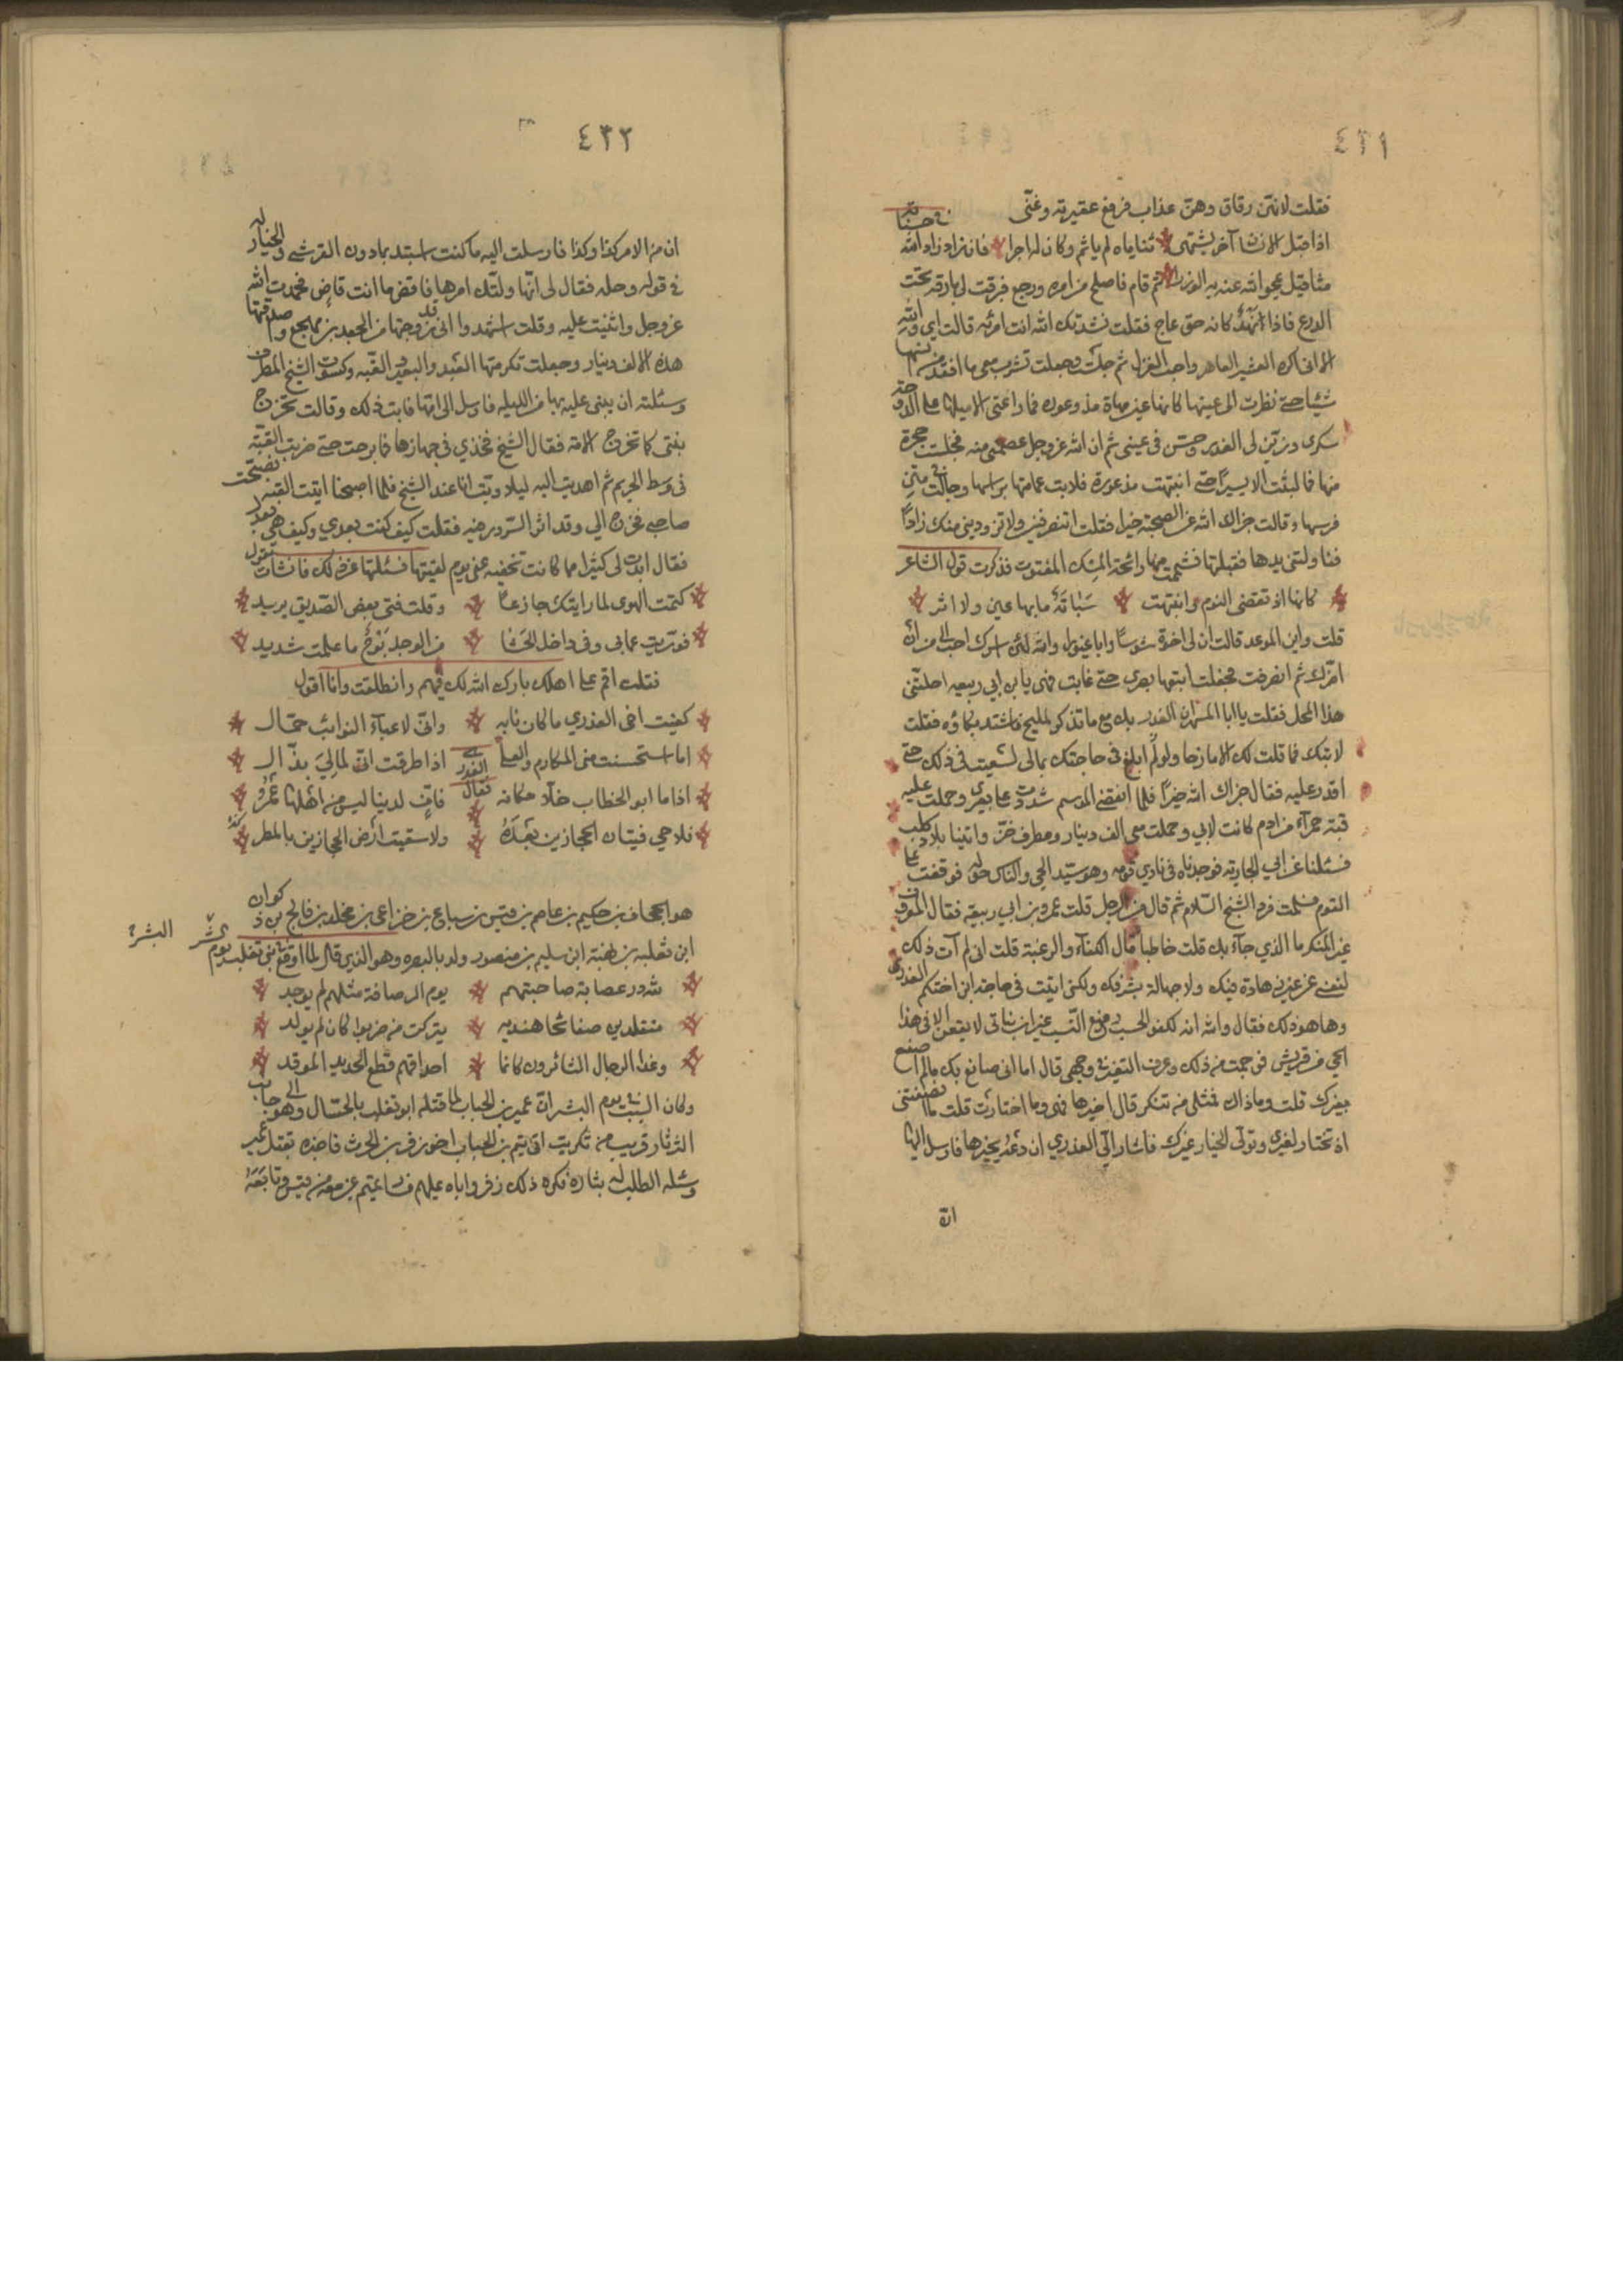 ٤٣١
فقلت لانتن رقاق وهن عذاب فرفع عقيرته وغنى
اذا قبل الانسان آخر يشتهى ثناياه لم ياثم وكان له اجرا فان زاد زاد الله في حسناته
مثاقيل يمحو الله عنه به الوزرا ثم قام فاصلح من امره ورجع فبرقت لى بارقة تحت
الدرع فاذا نهد كانه حق عاج فقلت نشدتك الله انت امرأة قالت اى والله
الا انى اكره العشير العاهر واحب الغزل ثم جلست وجعلت تشرب معى ما افقد من انسها
شيئا حتى نظرت الى عينها كانها عين مهاة مذعوره فما راعنى الا ميلها على الدوحة
سكرى وزين لى الغدر وحسن فى عينى ثم ان الله عز وجل عصمنى منه فجلست حجرة
منها فما لبثت الا يسيرا حتى انتبهت مذعورة فلاثت عمامتها براسها وجالت فى متن
فرسها وقالت جزاك الله عن الصحبة خيرا فقلت اتنصرفين ولا تزودينى منك زادا
فناولتنى يدها فقبلتها فشممت منها رائحة المسك المفتوت فذكرت قول الشاعر
كانها اذ تقضى النوم وانتبهت سبابة ما بها عين ولا اثر
قلت واين الموعد قالت ان لى اخوة شوسا وابا غيورا والله لئن اسرك احب الى من ان
اضرك ثم انصرفت فجعلت اتبعها بصرى حتى غابت فهى يا بن ابى ربيعه احلتنى
هذا المحل فقلت يا ابا المسهر ان الغدر بك مع ما تذكر لمليح فاشتد بكاؤه فقلت
لا تبك فما قلت لك الا مازحا ولو لم ابلغ فى حاجتك بمالى لسعيت فى ذلك حتى
اقدر عليه فقال جزاك الله خيرا فلما انقضى الموسم شددت على بعيرى وحملت عليه
قبة حمرآء من ادم كانت لابي وحملت معى الف دينار ومطرف خز واتينا بلاد كلب
فسئلنا عن ابي الجارية فوجدناه فى نادي قومه وهو سيد الحى والناس حوله فوقفت على
القوم فسلمت فرد الشيخ السلام ثم قال من الرجل قلت عمرو بن ابي ربيعة فقال المعروف
غير المنكر ما الذي جآء بك قلت خاطبا قال الكفآء والرغبة قلت انى لم آت ذلك
لنفسى عن غير زهادة فيك ولا جهالة بشرفك ولكنى اتيت فى حاجة ابن اختكم العذرى
وها هو ذلك فقال والله انه لكفو الحسب رفيع النسب غير ان بناتى لا يقعن الا فى هذا
الحى من قريش فوجمت من ذلك وعرف التغير فى وجهى قال اما انى صانع بك ما لم اصنع
بغيرك قلت وما ذاك فمثلى من تشكر قال اخيرها فهى وما اختارت قلت ما انصفتنى
اذ تختار لغيرى وتولى الخيار غيرك فاشار الى العذري ان دعه يخيرها فارسل اليها
ان
٤٣٢
ان من الامر كذا وكذا فارسلت اليه ما كنت استبد براى دون القرشى والخيار له
فى قوله وحله فقال لى انها ولتك امرها فاقض ما انت قاض فحمدت الله
عز وجل واثنيت عليه وقلت اشهدوا انى قد زوجتها من الجعد بن مهجع واصدقتها
هذه الالف دينار وجعلت تكرمتها العبد والبعير والقبه وكسوت الشيخ المطرف
وسئلته ان يبنى عليه بها من الليله فارسل الى امها فابت ذلك وقالت تخرج
بنتى كما تخرج الامة فقال الشيخ فخذي فى جهازها فما برحت حتى ضربت القبة
فى وسط الحريم ثم اهديت اليه ليلا وبت انا عند الشيخ فلما اصبحنا اتيت القبه فصحت
صاحبى فخرج الى وقد اثر السرور فيه فقلت كيف كنت بعدي وكيف هى بعدك
فقال ابدت لى كثيرا مما كانت تخفيه عنى يوم لقيتها فسئلتها عن ذلك فانشات تقول
كتمت الهوى لما رايتك جازعا وقلت فتى بعض الصديق يريد
فوريت عما بى وفى داخل الحشا من الوجد برح ما علمت شديد
فقلت اقم على اهلك بارك الله لك فيهم وانطلقت وانا اقول
كفيت اخى العذري ما كان نابه وانى لاعبآء النوائب حمال
اما استحسنت منى المكارم والعلى اذا طرقت انى لمالى بذال
فقال العذرى
اذا ما ابو الخطاب خلى مكانه فاف لدنيا ليس من اهلها عمرو
فلا حى فتيان الحجازين بعده ولا سقيت ارض الحجازين بالمطر
هو الجحاف بن حكيم بن عاصم بن قيس بن سباع بن خزاعى بن مخلد بن فالج بن ذكوان
ابن ثعلبه بن بهثة ابن سليم بن منصور ولد بالبصره وهو الذى قال لما اوقع ببنى تغلب يوم البشر
البشر
لله در عصابة صاحبتهم يوم الرصافة مثلهم لم يوجد
متقلدين صفائحا هنديه يتركن من ضربوا كان لم يولد
وغدا الرجال الثائرون كانما احداقهم قطع الحديد الموقد
وكان السبب فى يوم البشر ان عمير بن الحباب لما قتله ابو تغلب بالحشاك وهو الى جانب
الثرثار قريب من تكريت اتى تميم بن الحباب اخو زفر بن الحرث فاخبره بقتل عمير
وسئله الطلب له بثاره فكره ذلك زفر واباه عليهم فسار تميم بمن معه من قيس وتابعه